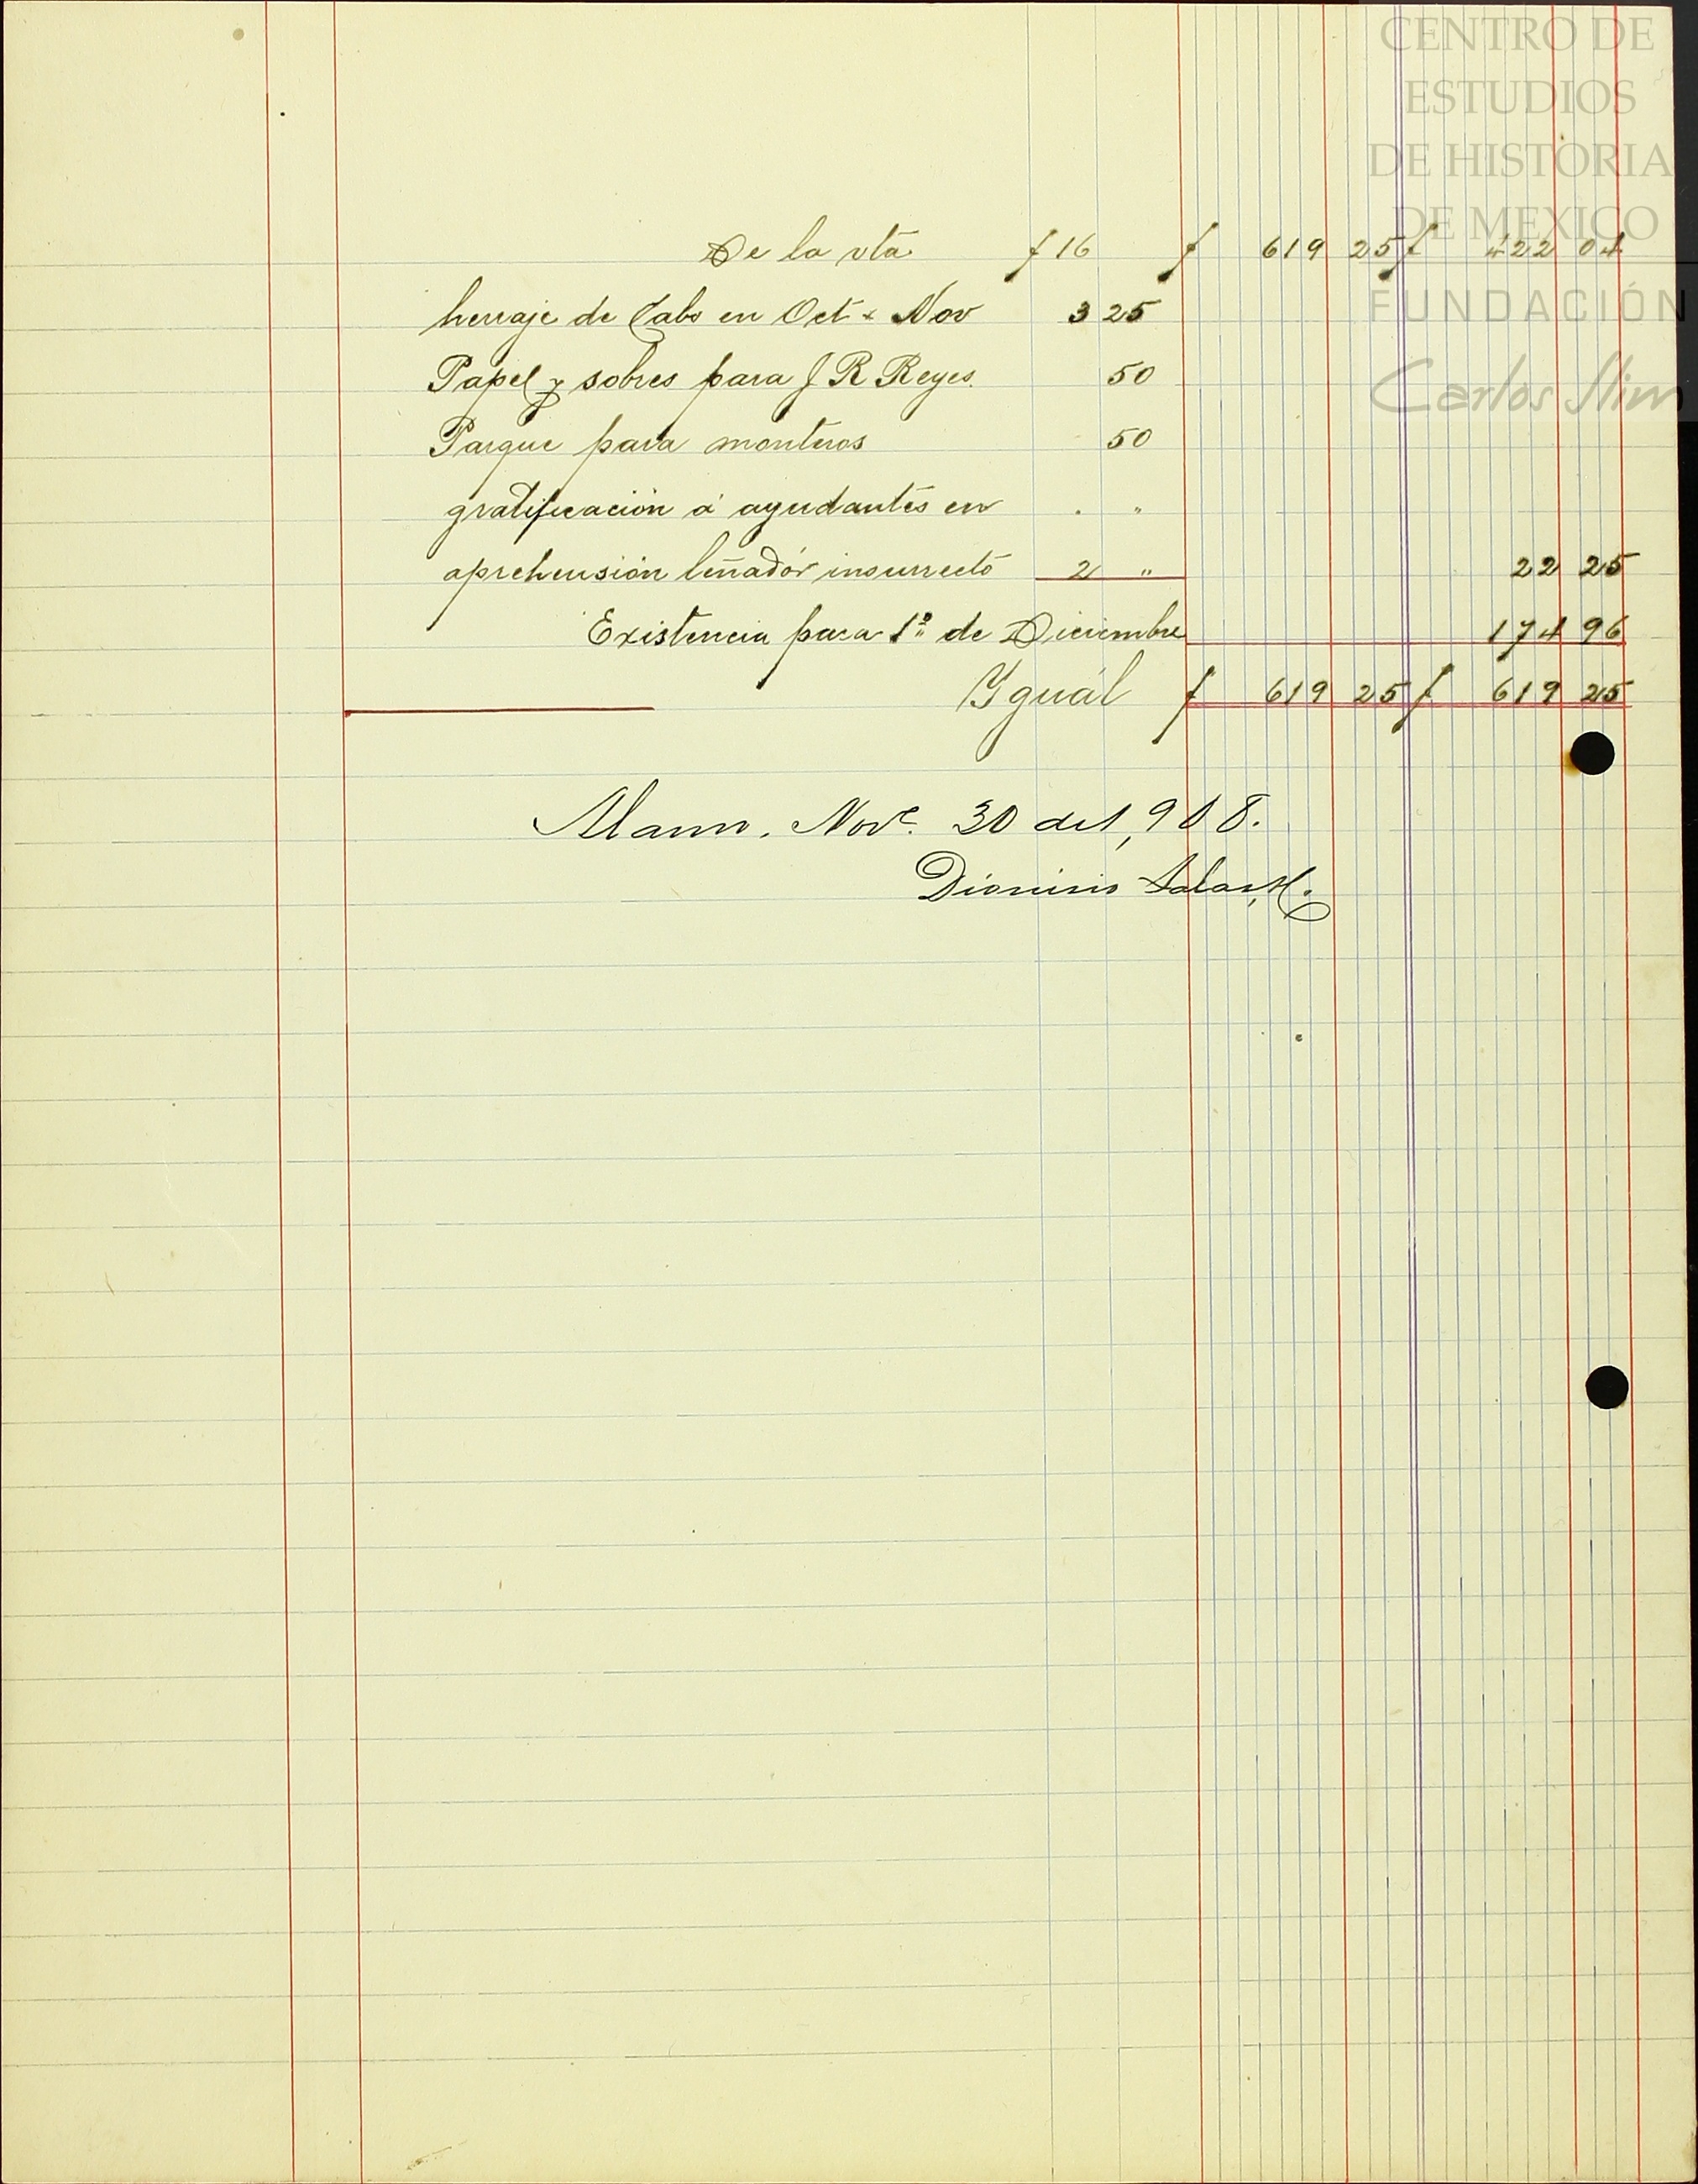 CENTRO DE
ESTUDIOS
DE HISTORIA
DE MEXICO
FUNDACIÓN
Carlos Slim
De la vta $ 16 $ 619 25 $ 422 04
herraje de Cabs en Oct x Nov 3 25
Papel y sobres para J R Reyes. 50
Parque para monteros 50
gratificación á ayudantes en . "
aprehensión leñador insurrecto 2 " 22 25
Existencia para 1º de Diciembre 174 96
Ygual $ 619 25 $ 619 25
Nove. 30 de 1,908.
Dionisio Salas, H.